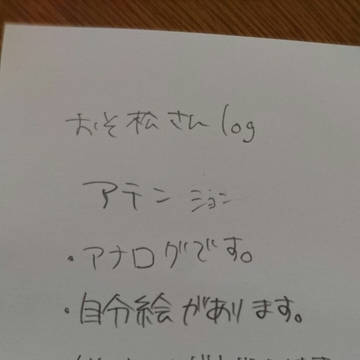 おそ松さんlog
アテンション
・アナログです。
・自分絵があります。